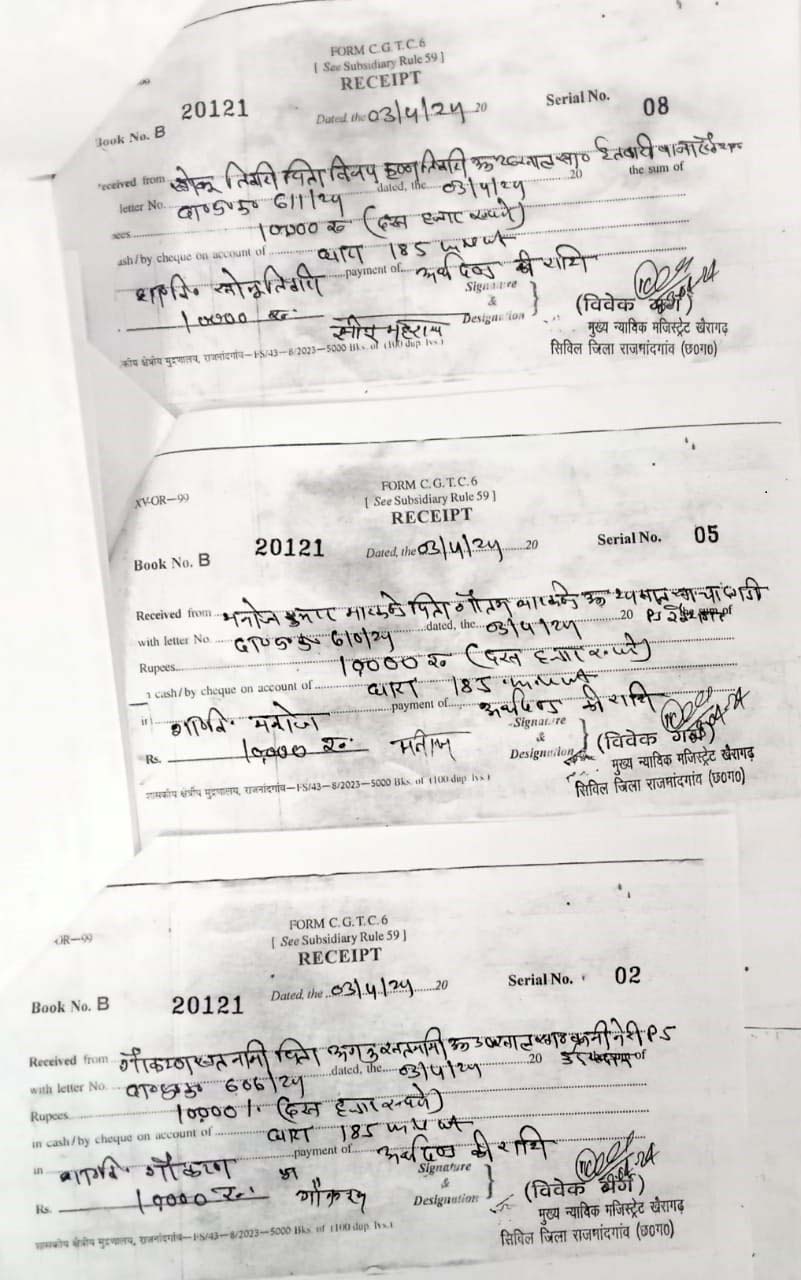 FORM C.G.T.C.6
[ See Subsidiary Rule 59 ]
RECEIPT
Book No. B 20121 Dated, the 03/4/24 20 Serial No. 08
received from तिवारी पिता विजय कृष्ण तिवारी
letter No. 611/24 dated, the 03/4/24 20 the sum of
10,000 रु (दस हजार रूपये)
ash/by cheque on account of धारा 185
payment of अर्थदण्ड की राशि
10,000 रु.
Signature
&
Designation
(विवेक गर्ग)
मुख्य न्यायिक मजिस्ट्रेट खैरागढ़
सिविल जिला राजनांदगांव (छ०ग०)
कीय क्षेत्रीय मुद्रणालय, राजनांदगांव—FS/43—8/2023—5000 Bks. of (100 dup. lvs.)
XV-OR—99
FORM C.G.T.C.6
[ See Subsidiary Rule 59 ]
RECEIPT
Book No. B 20121 Dated, the 03/4/24 20 Serial No. 05
Received from मनोज कुमार पिता गौतम
with letter No. 610/24 dated, the 03/4/24 20
Rupees 10,000 रु (दस हजार रूपये)
cash/by cheque on account of धारा 185
in मनोज payment of अर्थदण्ड की राशि
Rs. 10,000 रु. मनोज
Signature
&
Designation
(विवेक गर्ग)
मुख्य न्यायिक मजिस्ट्रेट खैरागढ़
सिविल जिला राजनांदगांव (छ०ग०)
शासकीय क्षेत्रीय मुद्रणालय, राजनांदगांव—FS/43—8/2023—5000 Bks. of (100 dup. lvs.)
OR—99
FORM C.G.T.C.6
[ See Subsidiary Rule 59 ]
RECEIPT
Book No. B 20121 Dated, the 03/4/24 20 Serial No. 02
Received from गौकरण सतनामी पिता PS
with letter No. 606/24 dated, the 03/4/24 20
Rupees 10,000/. (दस हजार रूपये)
in cash/by cheque on account of धारा 185
in गौकरण payment of अर्थदण्ड की राशि
Rs. 10,000 रु. गौकरण
Signature
&
Designation
(विवेक गर्ग)
मुख्य न्यायिक मजिस्ट्रेट खैरागढ़
सिविल जिला राजनांदगांव (छ०ग०)
शासकीय क्षेत्रीय मुद्रणालय, राजनांदगांव—FS/43—8/2023—5000 Bks. of (100 dup. lvs.)